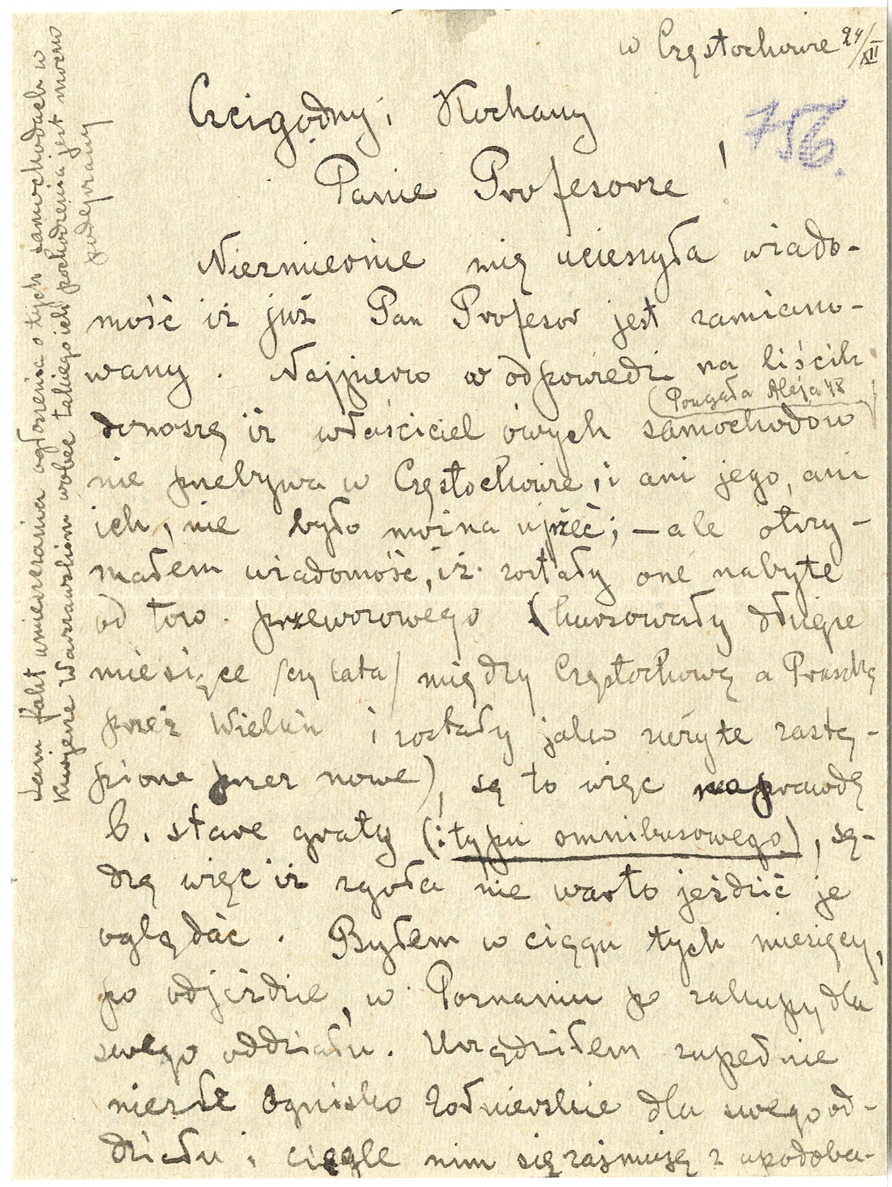 w Częstochowie 24/XII
Czcigodny i Kochany
Panie Profesorze !
756.
Niezmiernie mię ucieszyła wiado-
mość iż już Pan Profesor jest zamiano-
wany. Najpierw w odpowiedzi na liścik
Aleja 48
donoszę iż właściciel owych samochodów
nie przebywa w Częstochowie, i ani jego, ani
ich, nie było można ujrzeć; — ale otrzy-
małem wiadomość, iż zostały one nabyte
od tow. przewozowego (kursowały długie
miesiące /czy lata/ między Częstochową a Praszką
przez Wieluń i zostały jako zużyte zastą-
pione przez nowe), są to więc naprawdę
b. stare graty (i typu omnibusowego), są-
dzę więc iż zgoła nie warto jeździć je
oglądać. Byłem w ciągu tych miesięcy,
po odjeździe, w Poznaniu po zakupy dla
swego oddziału. Urządziłem zupełnie
niezłe Ognisko Żołnierskie dla swego od-
działu i ciągle nim się zajmuję z upodoba-
Sam fakt umieszczania ogłoszenia o tych samochodach w
Kurjerze Warszawskim wobec takiego ich pochodzenia jest mocno
podejrzany